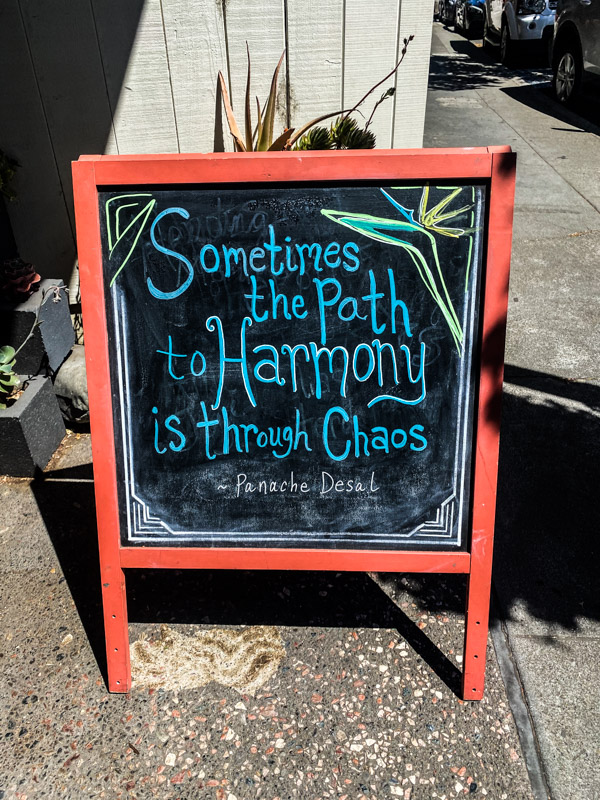 Sometimes
the Path
to Harmony
is through Chaos
~ Panache Desai